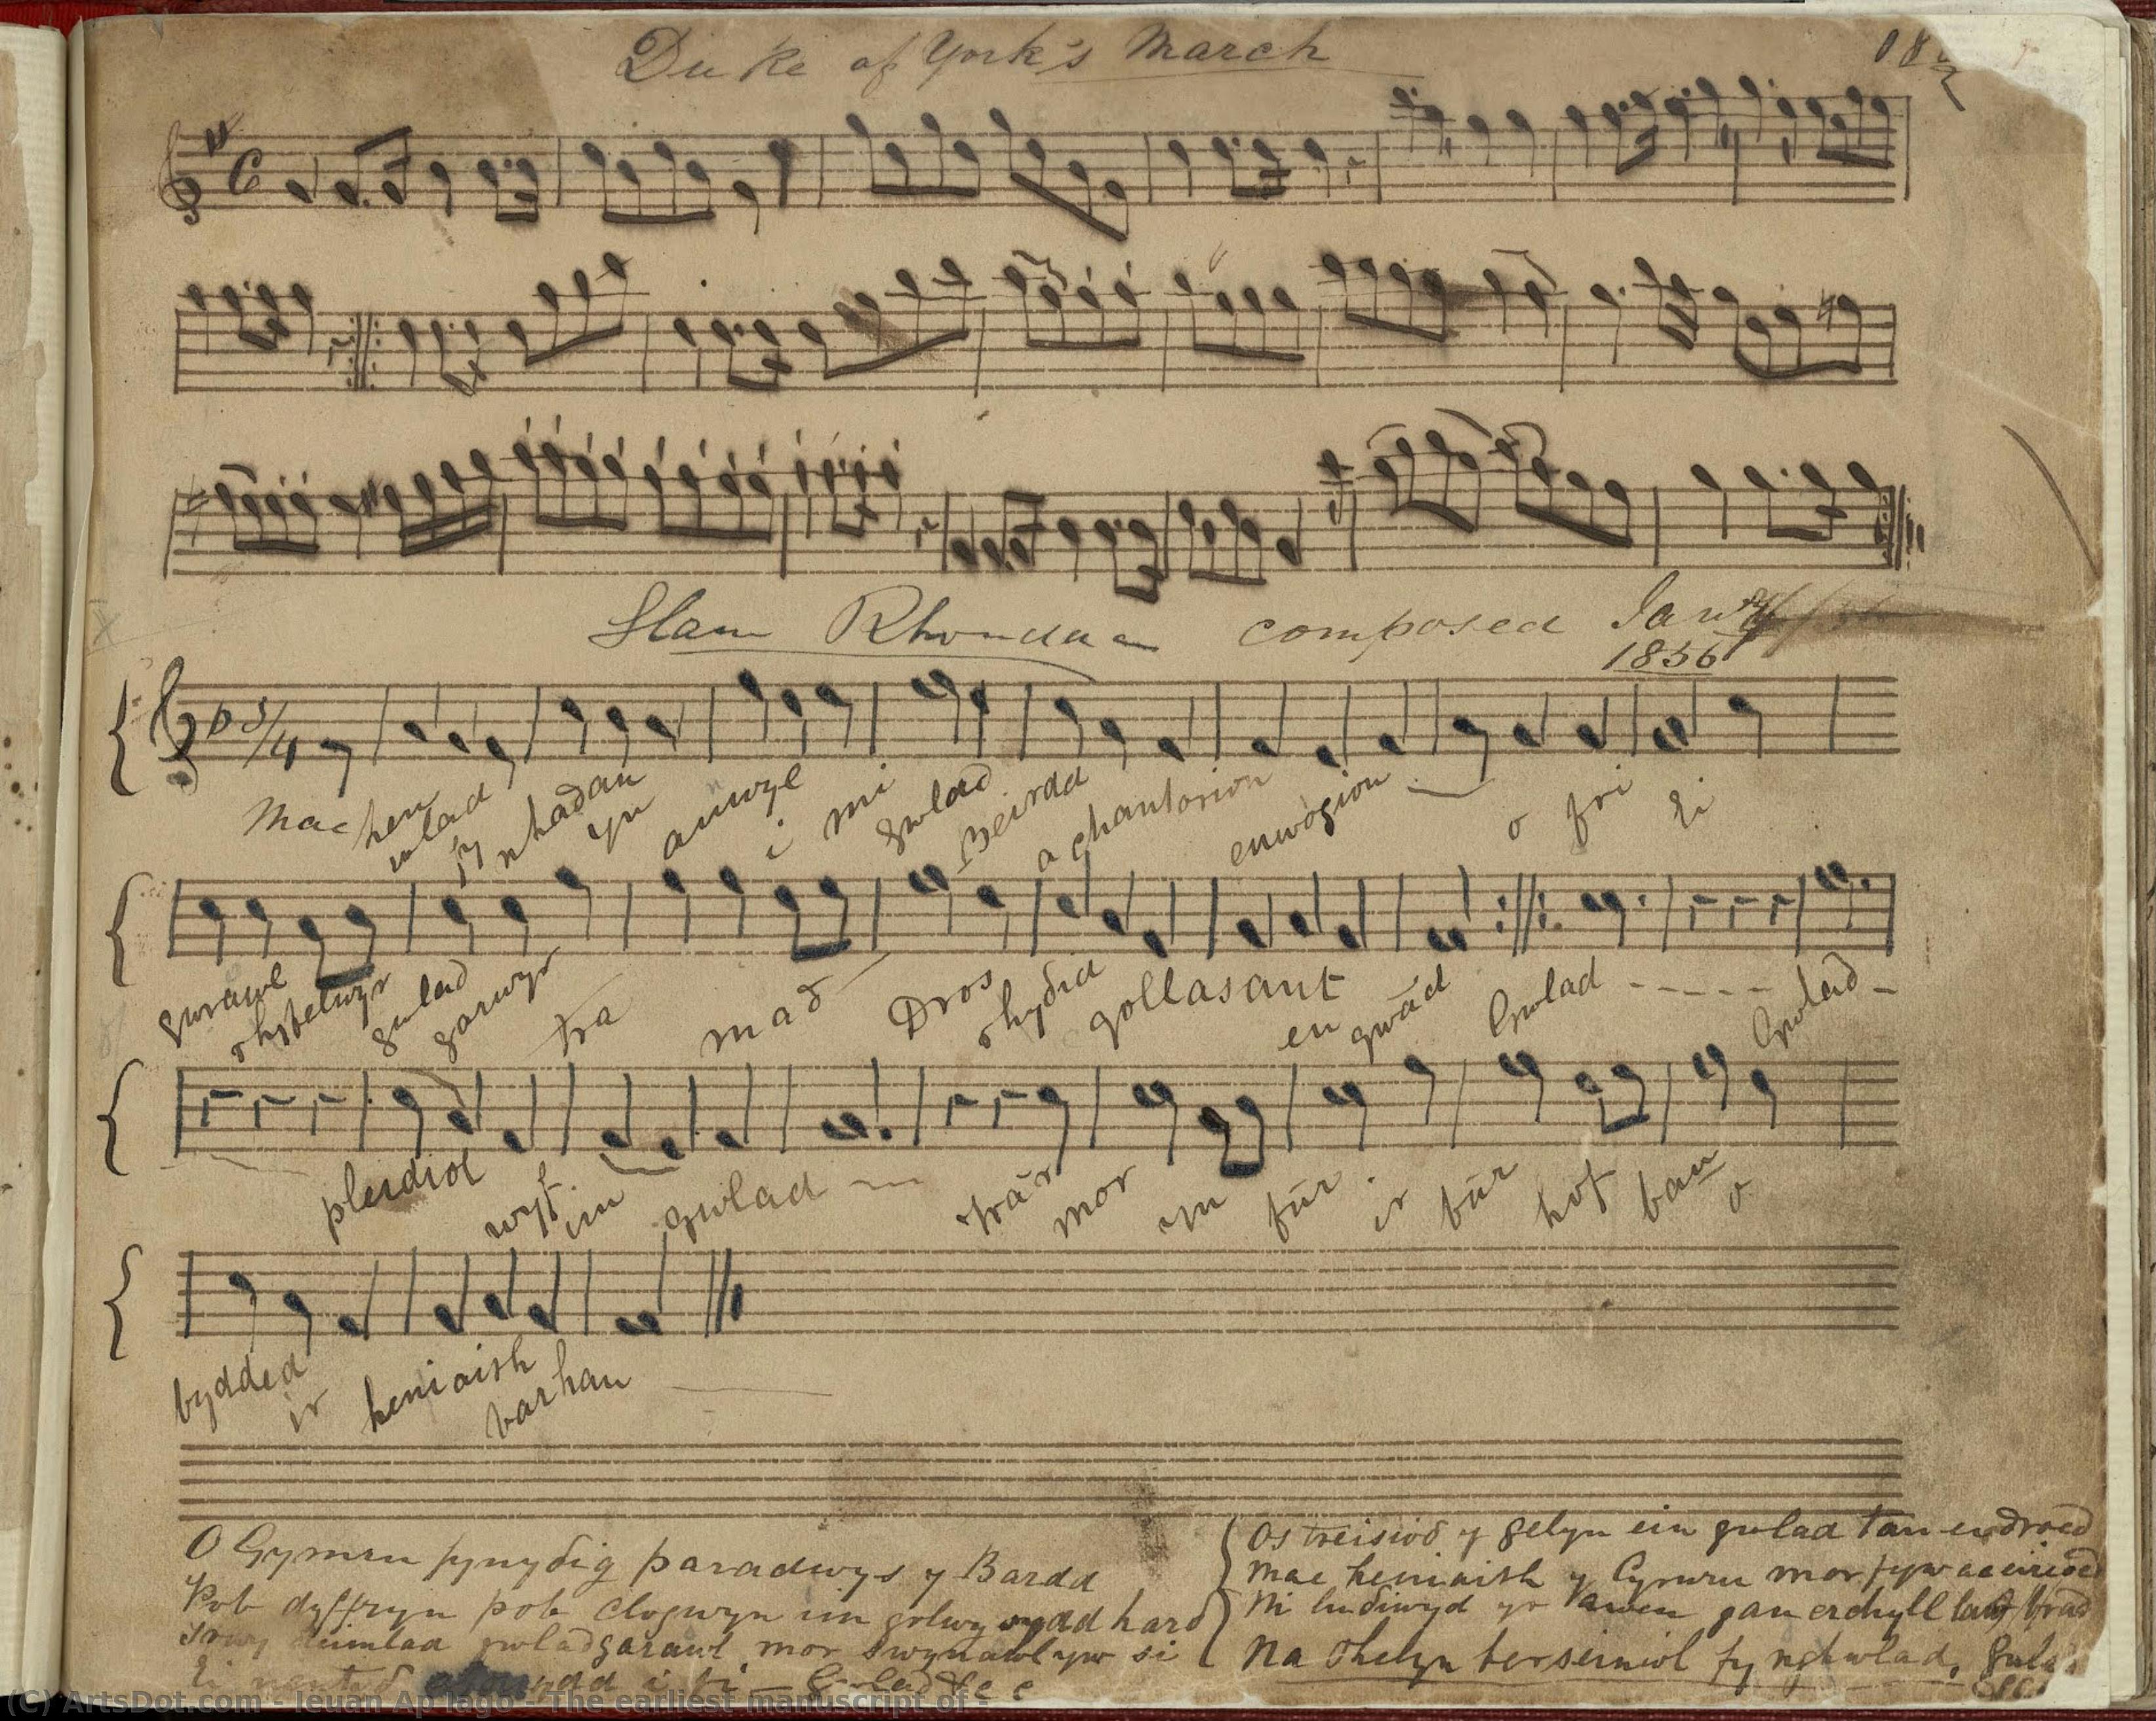 Duke of York's March
Glan Rhondda composed Jan
1856
Mae hen wlad fy nhadau yn anwyl i mi gwlad Beirdd a chantorion enwogion o fri Ei
gwrawl rhyfelwyr gwlad garwyr tra mad Dros rhyddid gollasant eu gwâd Gwlad ----- Gwlad -
pleidiol wyf im gwlad tra mor yn fur ir bur hof bau o
bydded ir heniaith barhau
O Gymru fynyδig paradwys y Bardd
Pob dyffryn pob clogwyn im golwg sydd hardδ
Trwy deimlad gwladgarawl mor swynawl yw si
Ei nentyδ i fi — Gwlad &c
Os treisioδ y gelyn ein gwlad tan eu droed
Mae heniaith y Cymru mor fyw ac erioed
Ni luδiwyd yr awen gan erchyll law brad
Na thelyn berseiniol fy nghwlad, Gwlad
(C) ArtsDot.com - Ieuan Ap Iago - The earliest manuscript of -